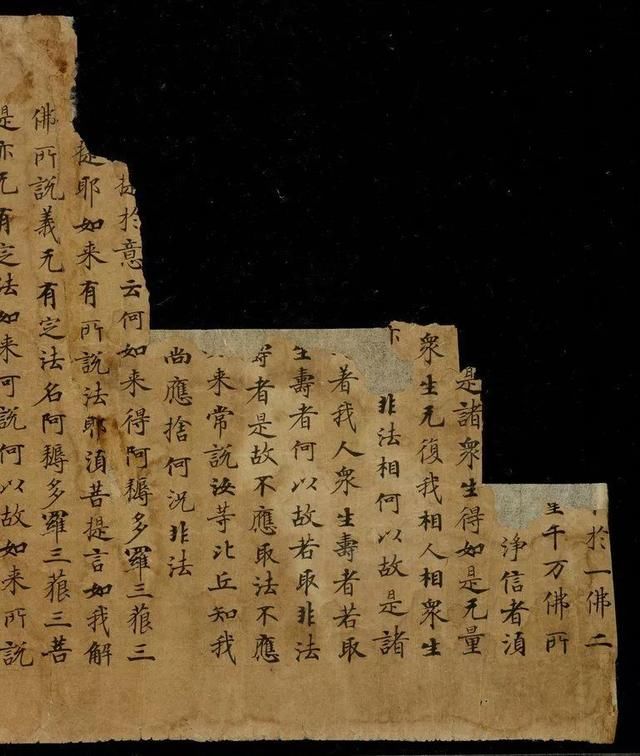 於一佛二
千万佛所
淨信者湏
是諸衆生得如是无量
衆生无復我相人相衆生
非法相何以故是諸
著我人衆生壽者若取
生壽者何以故若取非法
壽者是故不應取法不應
来常說汝等比丘知我
尚應捨何況非法
提於意云何如来得阿耨多羅三藐三
提耶如来有所說法耶湏菩提言如我解
佛所說義无有定法名阿耨多羅三藐三菩
是亦无有定法如来可說何以故如来所說